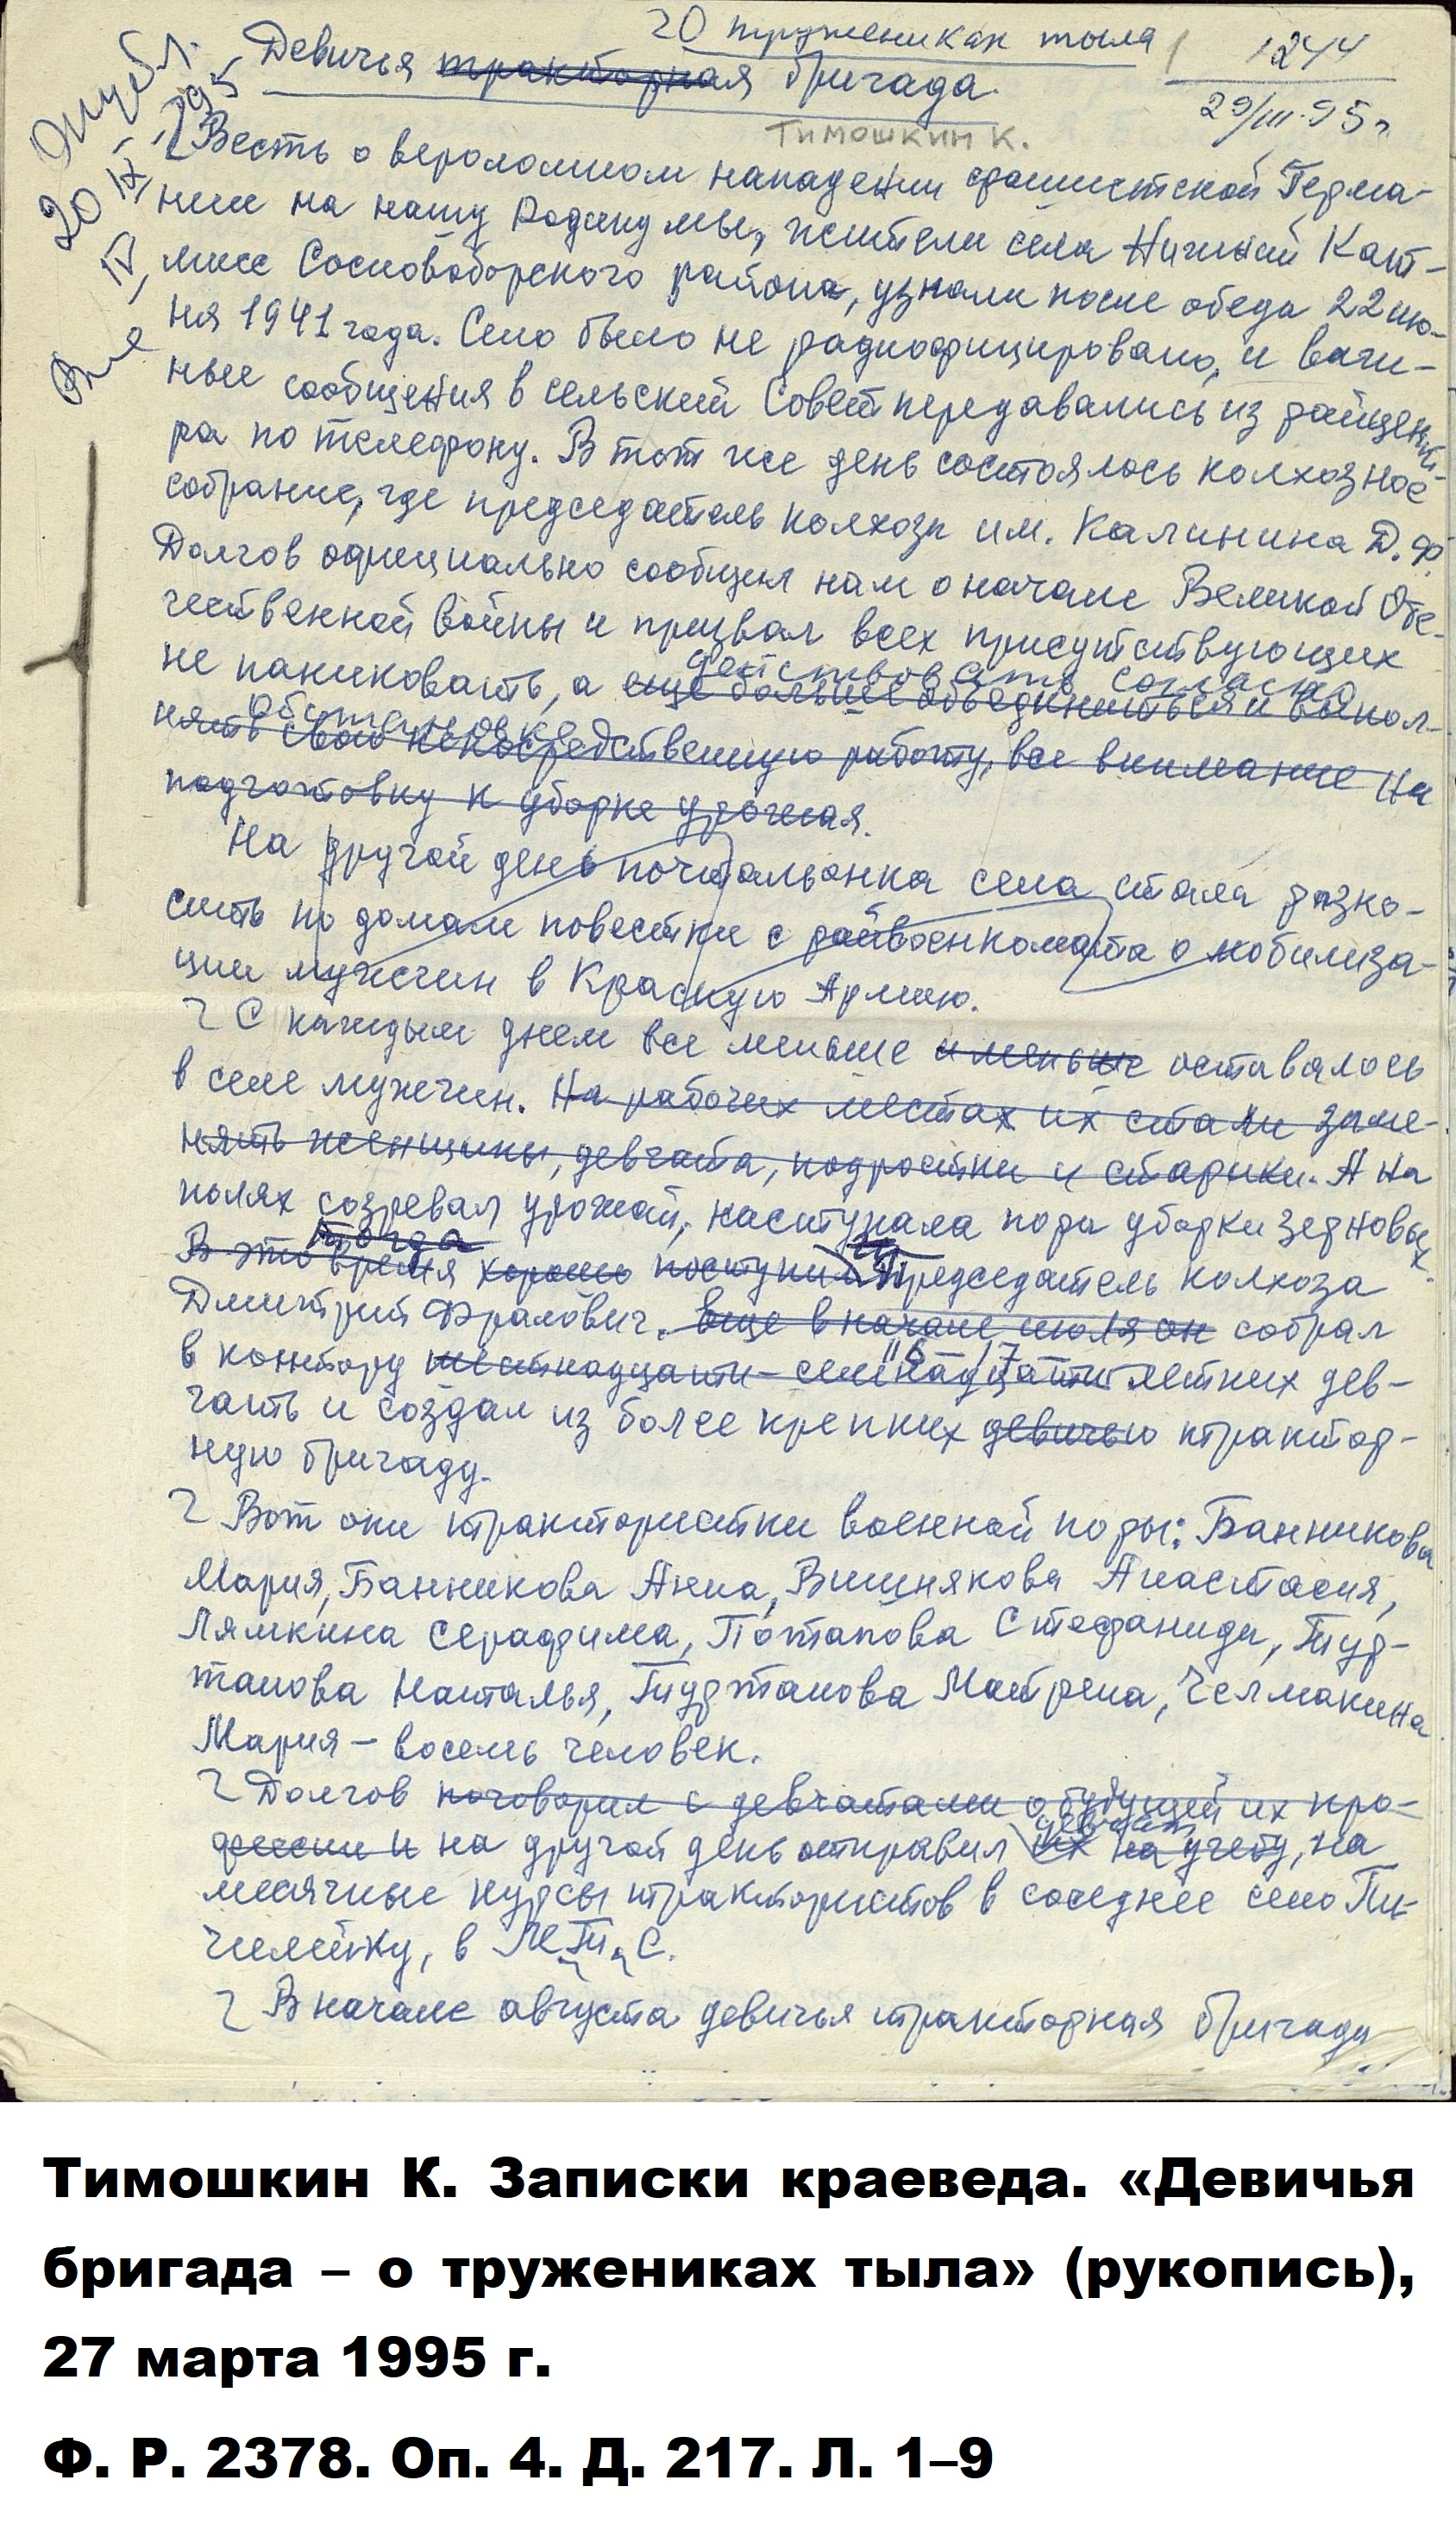 О тружениках тыла
Девичья тракторная бригада.
1244
29/III-95г
Тимошкин К.
Опубл.
20 IX-1995
Весть о вероломном нападении фашистской Герма-
нии на нашу Родину мы, жители села Нижний Кат-
мис Сосновоборского района, узнали после обеда 22 ию-
ня 1941 года. Село было не радиофицировано, и важ-
ные сообщения в сельский Совет передавались из райцент-
ра по телефону. В тот же день состоялось колхозное
собрание, где председатель колхоза им. Калинина Д.Ф.
Долгов официально сообщил нам о начале Великой Оте-
чественной войны и призвал всех присутствующих
действовать согласно
не паниковать, а еще больше объединиться и выпол-
обстановке
нять свою непосредственную работу, все внимание на
подготовку к уборке урожая.
На другой день почтальонка села стала разно-
сить по домам повестки с райвоенкомата о мобилиза-
ции мужчин в Красную Армию.
С каждым днем все меньше и меньше оставалось
в селе мужчин. На рабочих местах их стали заме-
нять женщины, девчата, подростки и старики. А на
полях созревал урожай, наступала пора уборки зерновых.
Тогда
В это время хорошо поступил Председатель колхоза
Дмитрий Фролович. Еще в начале июля он собрал
16-17
в контору шестнадцати-семнадцати летних дев-
чат и создал из более крепких девичью трактор-
ную бригаду.
Вот они трактористки военной поры: Банникова
Мария, Банникова Анна, Вишнякова Анастасия,
Лямкина Серафима, Потапова Стефанида, Тур-
танова Наталья, Туртанова Матрена, Челмакина
Мария – восемь человек.
Долгов поговорил с девчатами о будущей их про-
девчат
фессии и на другой день отправил их на учебу, на
месячные курсы трактористов в соседнее село Пи-
чилейку, в МТС.
В начале августа девичья тракторная бригада
Тимошкин К. Записки краеведа. «Девичья
бригада – о тружениках тыла» (рукопись),
27 марта 1995 г.
Ф. Р. 2378. Оп. 4. Д. 217. Л. 1–9